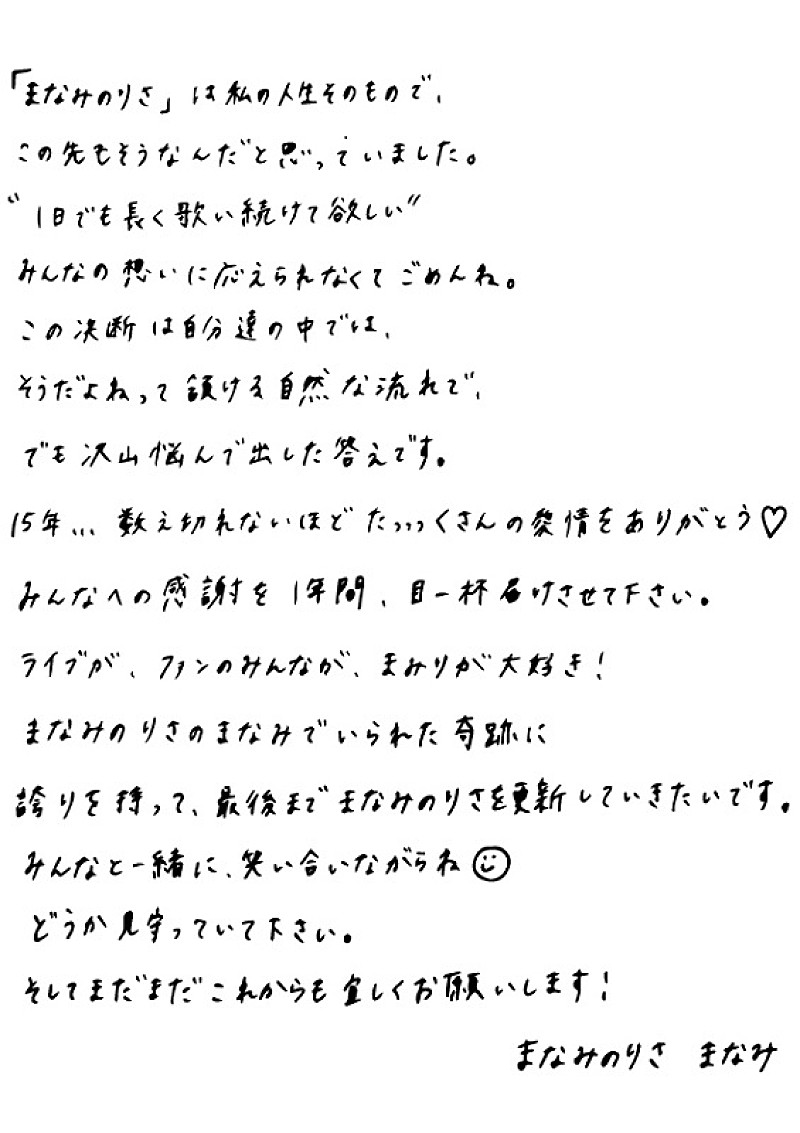 「まなみのりさ」は私の人生そのもので、
この先もそうなんだと思っていました。
"1日でも長く歌い続けて欲しい"
みんなの想いに応えられなくてごめんね。
この決断は自分達の中では、
そうだよねって頷ける自然な流れで、
でも沢山悩んで出した答えです。
15年...数え切れないほどたっっっくさんの愛情をありがとう♡
みんなへの感謝を1年間、目一杯届けさせて下さい。
ライブが、ファンのみんなが、まみりが大好き!
まなみのりさのまなみでいられた奇跡に
誇りを持って、最後までまなみのりさを更新していきたいです。
みんなと一緒に、笑い合いながらね☺
どうか見守っていて下さい。
そしてまだまだこれからも宜しくお願いします!
まなみのりさ まなみ